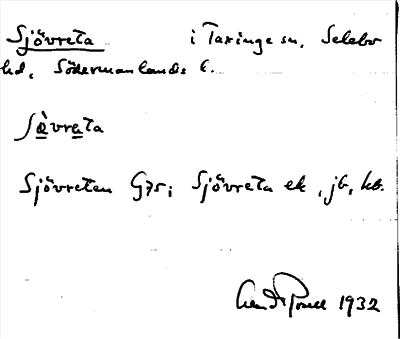 Sjövreta i Taxinge sn, Selebo
hd, Södermanlands l.
ʃö̀vreta
Sjövreten G75; Sjövreta ek, jb, hb.
1932